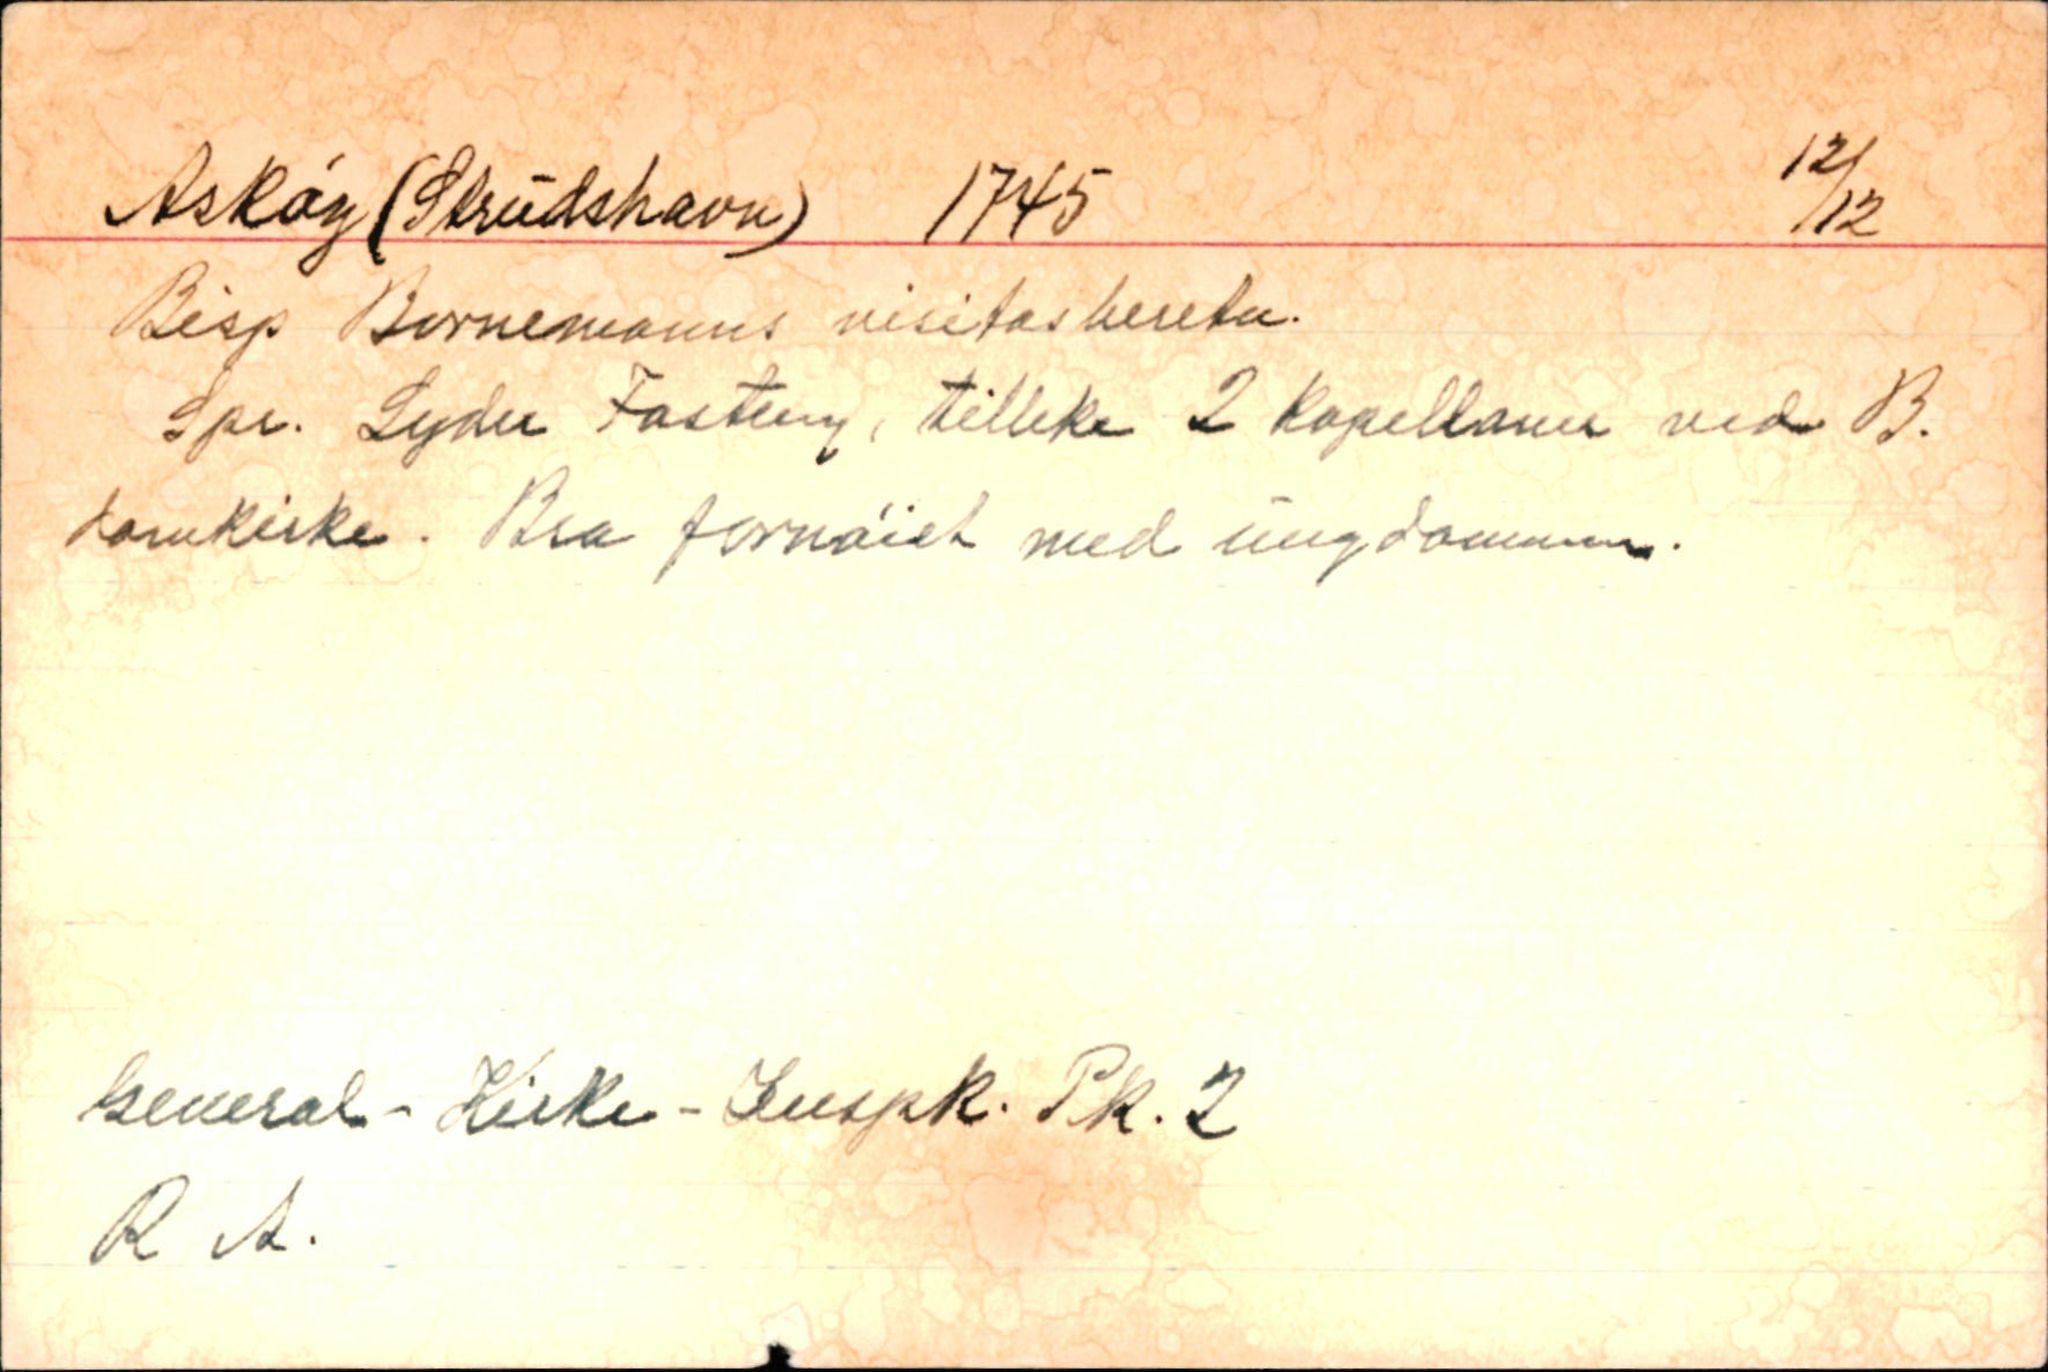 Askøy (Strudshavn) 1745 12/12
Bisp Bornemanns visitasberetn.
Spr. Lyder Fasting, tillike 2 kapellaner ved B.
domkirke. Bra fornøiet med ungdommen.
General-Kirke-Inspk. Pk. 2
R A.